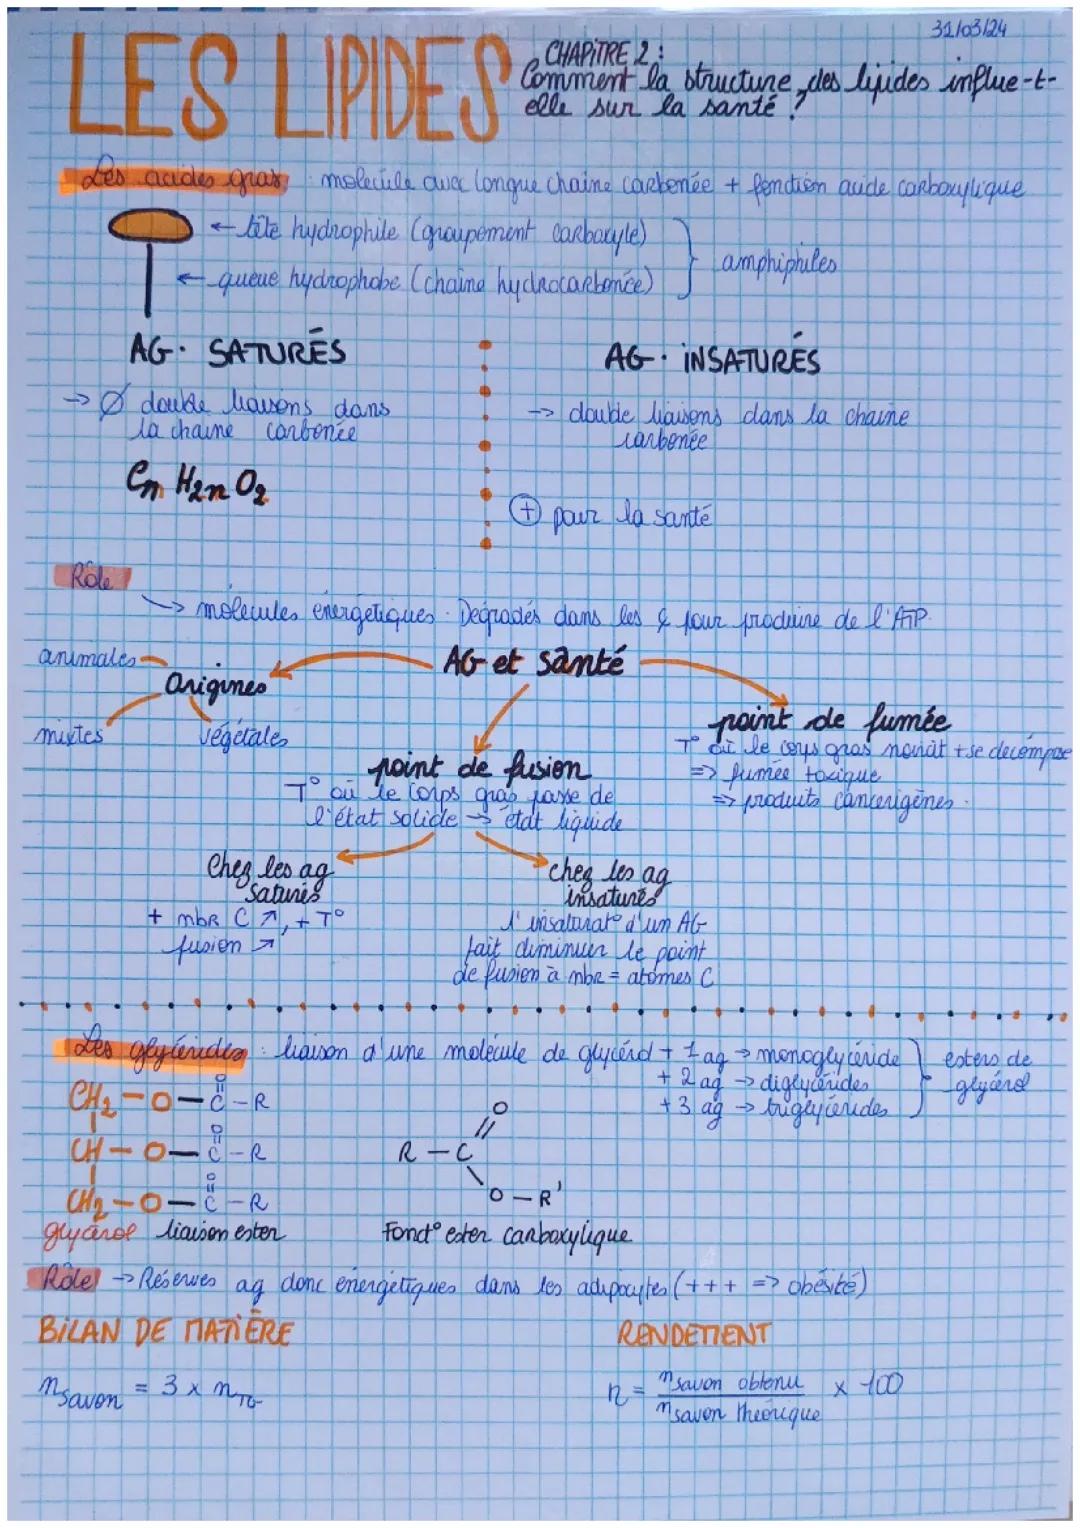 31/03/24
LES LIPIDES
CHAPITRE 2 :
Comment la structure des lipides influe-t-
elle sur la santé ?
Les acides gras : molécule avec longue chaine carbonée + fonction acide carboxylique
← tête hydrophile (groupement carboxyle)
← queue hydrophobe (chaine hydrocarbonée)
amphiphiles
AG. SATURÉS
→ Ø double liaisons dans
la chaine carbonée
Cn H2n O2
AG. INSATURÉS
→ double liaisons dans la chaine
carbonée
(+) pour la santé
Rôle
→ molécules énergétiques. Dégradés dans les ¢ pour produire de l'ATP.
AG et santé
Origines
animales
mixtes
végétales
point de fusion
T° où le corps gras passe de
l'état solide → état liquide
point de fumée
T° où le corps gras noircit + se décompose
=> fumée toxique
=> produits cancérigènes.
Chez les ag
saturés
+ nbr C ↗, + T°
fusion ↗
chez les ag
insaturés
l'insaturat° d'un AG
fait diminuer le point
de fusion à nbr = atomes C
Les glycérides : liaison d'une molécule de glycérol + 1 ag → monoglycéride
+ 2 ag → diglycérides
+ 3 ag → triglycérides
esters de
glycérol
O
CH2 - O - C - R
O
CH - O - C - R
O
CH2 - O - C - R
glycérol liaison ester
O
R - C
O - R'
Fonct° ester carboxylique
Rôle → Réserves ag donc énergétiques dans les adipocytes (+++ => obésité)
BILAN DE MATIÈRE
nsavon = 3 x nTG
RENDEMENT
η = nsavon obtenu x 100
nsavon théorique